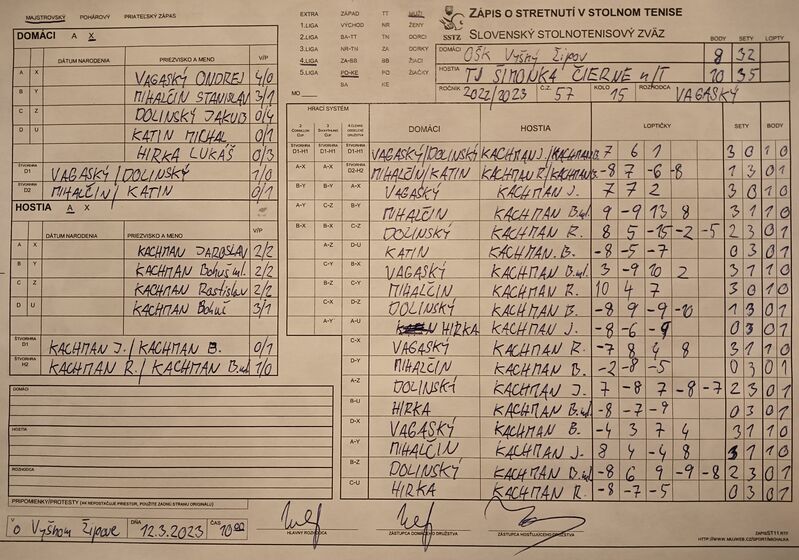 MAJSTROVSKÝ POHÁROVÝ PRIATEĽSKÝ ZÁPAS
DOMÁCI A X
DÁTUM NARODENIA PRIEZVISKO A MENO V/P
A X VAGASKÝ ONDREJ 4/0
B Y MIHALČIN STANISLAV 3/1
C Z DOLINSKÝ JAKUB 0/4
D U KATIN MICHAL 0/1
HIRKA LUKÁŠ 0/3
ŠTVORHRA D1 VAGASKÝ/DOLINSKÝ 1/0
ŠTVORHRA D2 MIHALČIN/KATIN 0/1
HOSTIA A X
DÁTUM NARODENIA PRIEZVISKO A MENO V/P
A X KACHMAN JAROSLAV 2/2
B Y KACHMAN Bohuš ml. 2/2
C Z KACHMAN Rastislav 2/2
D U KACHMAN Bohuš 3/1
ŠTVORHRA D1 KACHMAN J./KACHMAN B. 0/1
ŠTVORHRA H2 KACHMAN R./KACHMAN B.ml. 1/0
DOMÁCI
HOSTIA
ROZHODCA
PRIPOMIENKY/PROTESTY (AK NEPOSTAČUJE PRIESTOR, POUŽITE ZADNÚ STRANU ORIGINÁLU)
V o Vyšnom Žipove DŇA 12.3.2023 ČAS 10:00
HLAVNÝ ROZHODCA
ZÁSTUPCA DOMÁCEHO DRUŽSTVA
ZÁSTUPCA HOSŤUJÚCEHO DRUŽSTVA
EXTRA ZÁPAD TT MUŽI
1.LIGA VÝCHOD NR ŽENY
2.LIGA BA-TT TN DORCI
3.LIGA NR-TN ZA DORKY
4.LIGA ZA-BB BB ŽIACI
5.LIGA PO-KE PO ŽIAČKY
MO SA KE
SSTZ
ZÁPIS O STRETNUTÍ V STOLNOM TENISE
SLOVENSKÝ STOLNOTENISOVÝ ZVÄZ
BODY SETY LOPTY
DOMÁCI OŠK Vyšný Žipov 8 32
HOSTIA TJ ŠIMONKA ČIERNE n/T 10 35
ROČNÍK 2022/2023 Č.Z. 57 KOLO 15 ROZHODCA VAGASKÝ
HRACÍ SYSTÉM DOMÁCI HOSTIA LOPTIČKY SETY BODY
D1-H1 D1-H1 D1-H1 VAGASKÝ/DOLINSKÝ KACHMAN J./KACHMAN B. 7 6 1 3 0 1 0
A-X A-X D2-H2 MIHALČIN/KATIN KACHMAN R/KACHMAN B. -8 7 -6 -8 1 3 0 1
B-Y B-Y A-X VAGASKÝ KACHMAN J. 7 7 2 3 0 1 0
A-Y C-Z B-Y MIHALČIN KACHMAN B.ml. 9 -9 13 8 3 1 1 0
B-X B-X C-Z DOLINSKÝ KACHMAN R. 8 5 -15 -2 -5 2 3 0 1
A-Z D-U KATIN KACHMAN. B. -8 -5 -7 0 3 0 1
C-Y B-X VAGASKÝ KACHMAN B.ml. 3 -9 10 2 3 1 1 0
B-Z C-Y MIHALČIN KACHMAN R. 10 4 7 3 0 1 0
C-X D-Z DOLINSKÝ KACHMAN B. -8 9 -9 -10 1 3 0 1
A-Y A-U HIRKA KACHMAN J. -8 -6 -9 0 3 0 1
C-X VAGASKÝ KACHMAN R. -7 8 4 8 3 1 1 0
D-Y MIHALČIN KACHMAN B. -2 -8 -5 0 3 0 1
A-Z DOLINSKÝ KACHMAN J. 7 -8 7 -8 -7 2 3 0 1
B-U HIRKA KACHMAN B.ml. -8 -7 -9 0 3 0 1
D-X VAGASKÝ KACHMAN B. -4 3 7 4 3 1 1 0
A-Y MIHALČIN KACHMAN J. 8 4 -4 8 3 1 1 0
B-Z DOLINSKÝ KACHMAN B.ml. -8 6 9 -9 -8 2 3 0 1
C-U HIRKA KACHMAN R. -8 -7 -5 0 3 0 1
HTTP://WWW.MUJWEB.CZ/SPORT/MIHALKA